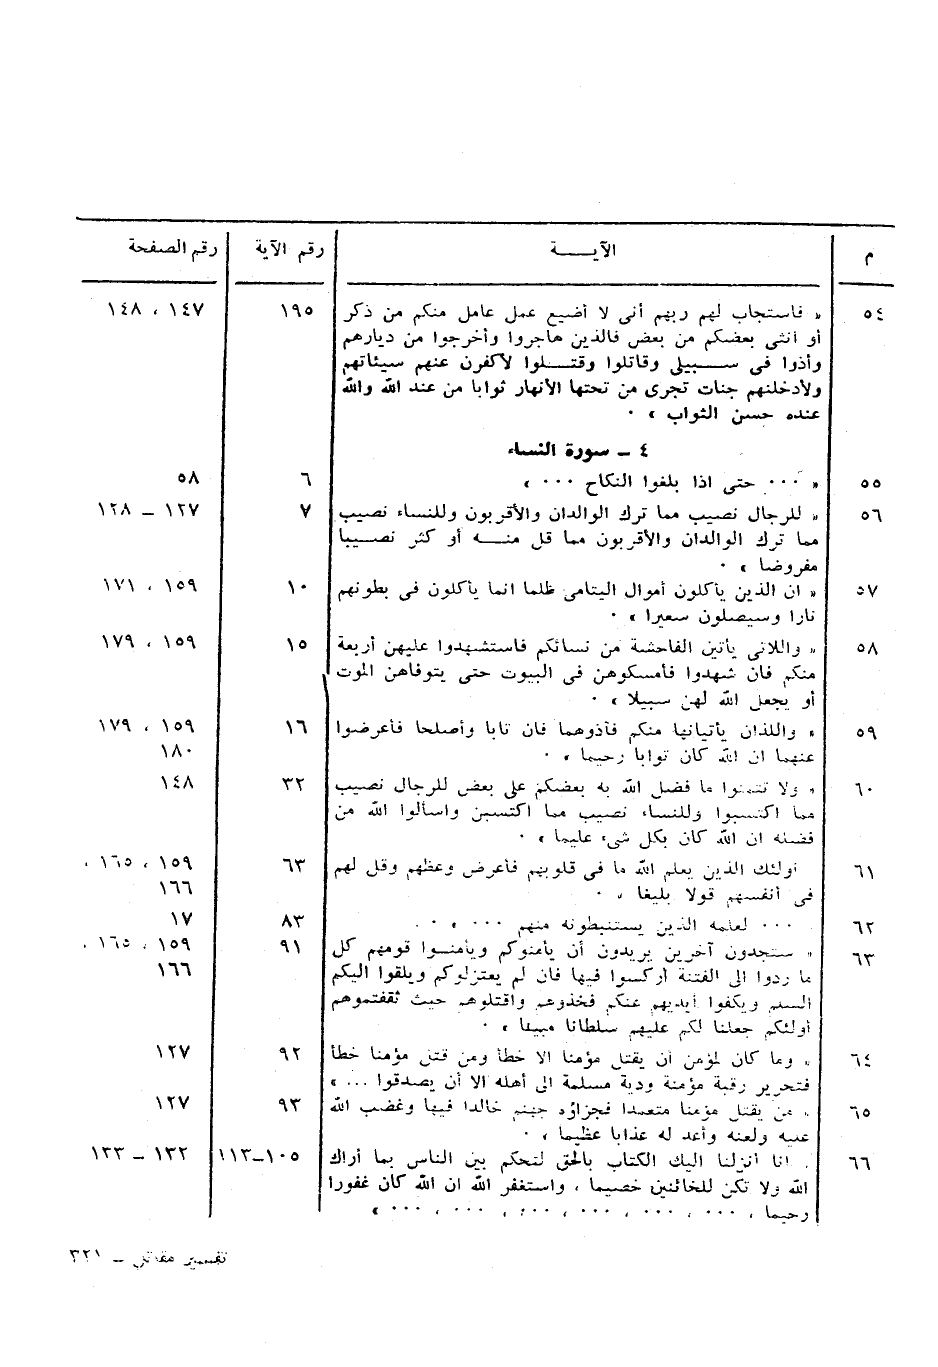 م الآيـــــة رقم الآية رقم الصفحة
٥٤ « فاستجاب لهم ربهم أنى لا أضيع عمل عامل منكم من ذكر ١٩٥ ١٤٧ ، ١٤٨
أو انثى بعضكم من بعض فالذين هاجروا وأخرجوا من ديارهم
وأذوا فى ســـبيلى وقاتلوا وقتـــلوا لأكفرن عنهم سيئاتهم
ولأدخلنهم جنات تجرى من تحتها الأنهار ثوابا من عند الله والله
عنده حسن الثواب » ٠
٤ ــ سورة النساء
٥٥ « ٠٠٠ حتى اذا بلغوا النكاح ٠٠٠ » ٦ ٥٨
٥٦ « للرجال نصيب مما ترك الوالدان والأقربون وللنساء نصيب ٧ ١٢٧ ــ ١٢٨
مما ترك الوالدان والأقربون مما قل منـــه أو كثر نصـــيبا
مفروضا » ٠
٥٧ « ان الذين يأكلون أموال اليتامى ظلما انما يأكلون فى بطونهم ١٠ ١٥٩ ، ١٧١
نارا وسيصلون سعيرا » ٠
٥٨ « واللاتى يأتين الفاحشة من نسائكم فاستشهدوا عليهن أربعة ١٥ ١٥٩ ، ١٧٩
منكم فان شهدوا فأمسكوهن فى البيوت حتى يتوفاهن الموت
أو يجعل الله لهن سبيلا » ٠
٥٩ « واللذان يأتيانها منكم فآذوهما فان تابا وأصلحا فأعرضوا ١٦ ١٥٩ ، ١٧٩
عنهما ان الله كان توابا رحيما » ٠ ١٨٠
٦٠ « ولا تتمنوا ما فضل الله به بعضكم على بعض للرجال نصيب ٣٢ ١٤٨
مما اكتسبوا وللنساء نصيب مما اكتسبن واسألوا الله من
فضله ان الله كان بكل شىء عليما » ٠
٦١ أولئك الذين يعلم الله ما فى قلوبهم فأعرض وعظهم وقل لهم ٦٣ ١٥٩ ، ١٦٥ ،
فى أنفسهم قولا بليغا » ٠ ١٦٦
٦٢ ٠٠٠ لعلمه الذين يستنبطونه منهم ٠٠٠ » ٠ ٨٣ ١٧
٦٣ « ستجدون آخرين يريدون أن يأمنوكم ويأمنـــوا قومهم كل ٩١ ١٥٩ ، ١٦٥ ،
ما ردوا الى الفتنة أركسوا فيها فان لم يعتزلوكم ويلقوا اليكم ١٦٦
السلم ويكفوا أيديهم عنكم فخذوهم واقتلوهم حيث ثقفتموهم
أولئكم جعلنا لكم عليهم سلطانا مبينا » ٠
٦٤ « وما كان لمؤمن أن يقتل مؤمنا الا خطأ ومن قتل مؤمنا خطأ ٩٢ ١٢٧
فتحرير رقبة مؤمنة ودية مسلمة الى أهله الا أن يصدقوا ... »
٦٥ « من يقتل مؤمنا متعمدا فجزاؤه جهنم خالدا فيها وغضب الله ٩٣ ١٢٧
عليه ولعنه وأعد له عذابا عظيما » ٠
٦٦ انا أنزلنا اليك الكتاب بالحق لتحكم بين الناس بما أراك ١٠٥ــ١١٣ ١٣٢ ــ ١٣٣
الله ولا تكن للخائنين خصيما ، واستغفر الله ان الله كان غفورا
رحيما ، ٠٠٠ ، ٠٠٠ ، ٠٠٠ ، ٠٠٠ ، ٠٠٠ ، ٠٠٠ »
تفسير مقاتل ــ ٣٢١